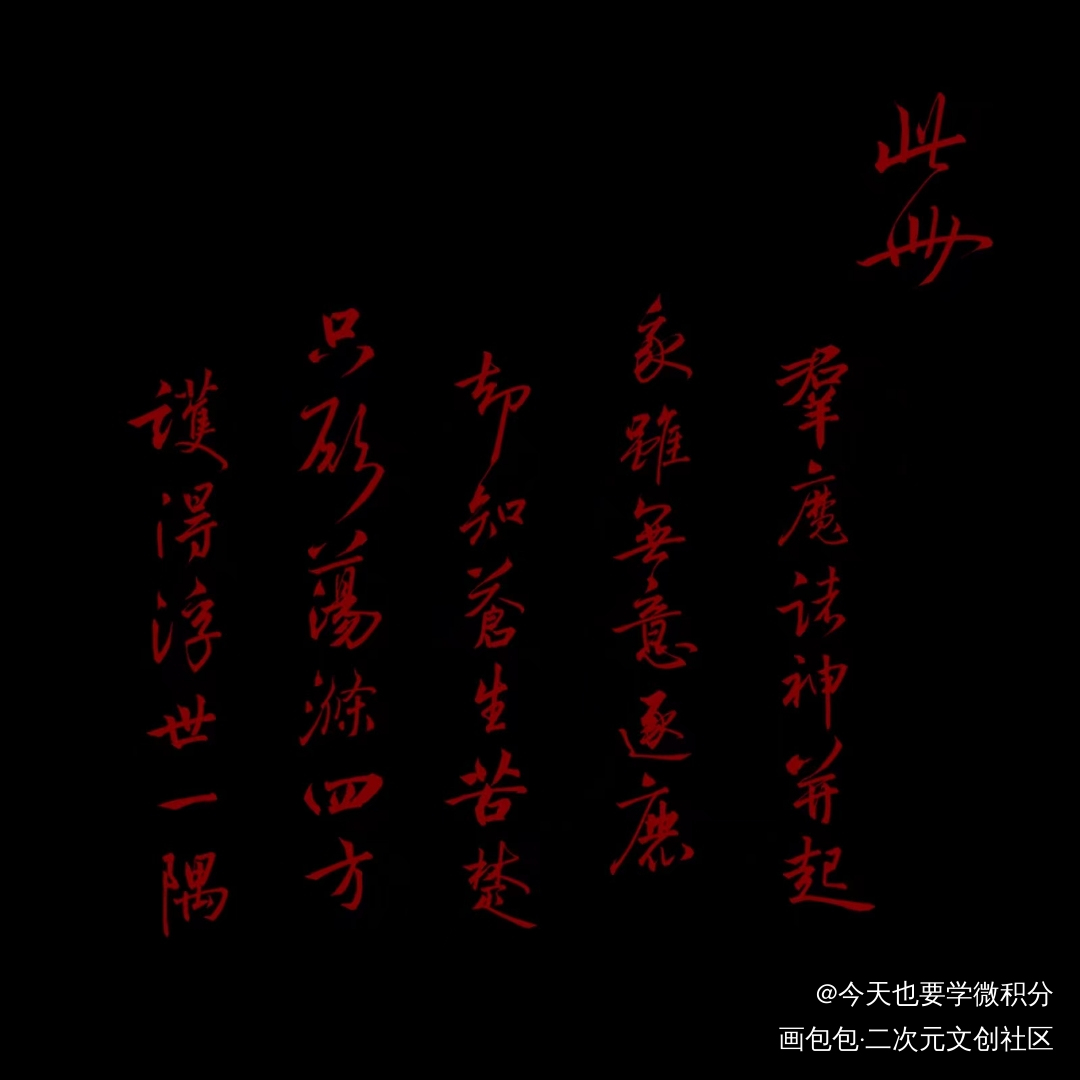 此世
羣魔諸神并起
我雖無意逐鹿
却知蒼生苦楚
只願蕩滌四方
護得浮世一隅
@今天也要学微积分
画包包·二次元文创社区